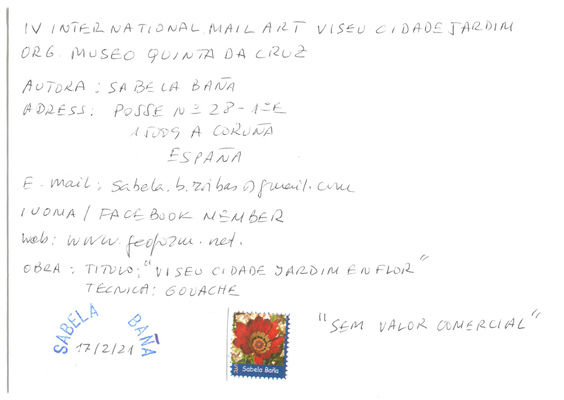 IV INTERNATIONAL MAIL ART VISEU CIDADE JARDIM
ORG. MUSEO QUINTA DA CRUZ
AUTORA: SABELA BAÑA
ADRESS: POSSE Nº 28-1ºE
15009 A CORUÑA
ESPAÑA
E.mail: sabela.b.ribas@gmail.com
IUOMA / FACEBOOK MEMBER
web: www.feofozm.net.
OBRA: TITULO: "VISEU CIDADE JARDIM EN FLOR"
TECNICA: GOUACHE
SABELA BAÑA
17/2/21
Sabela Baña
"SEM VALOR COMERCIAL"